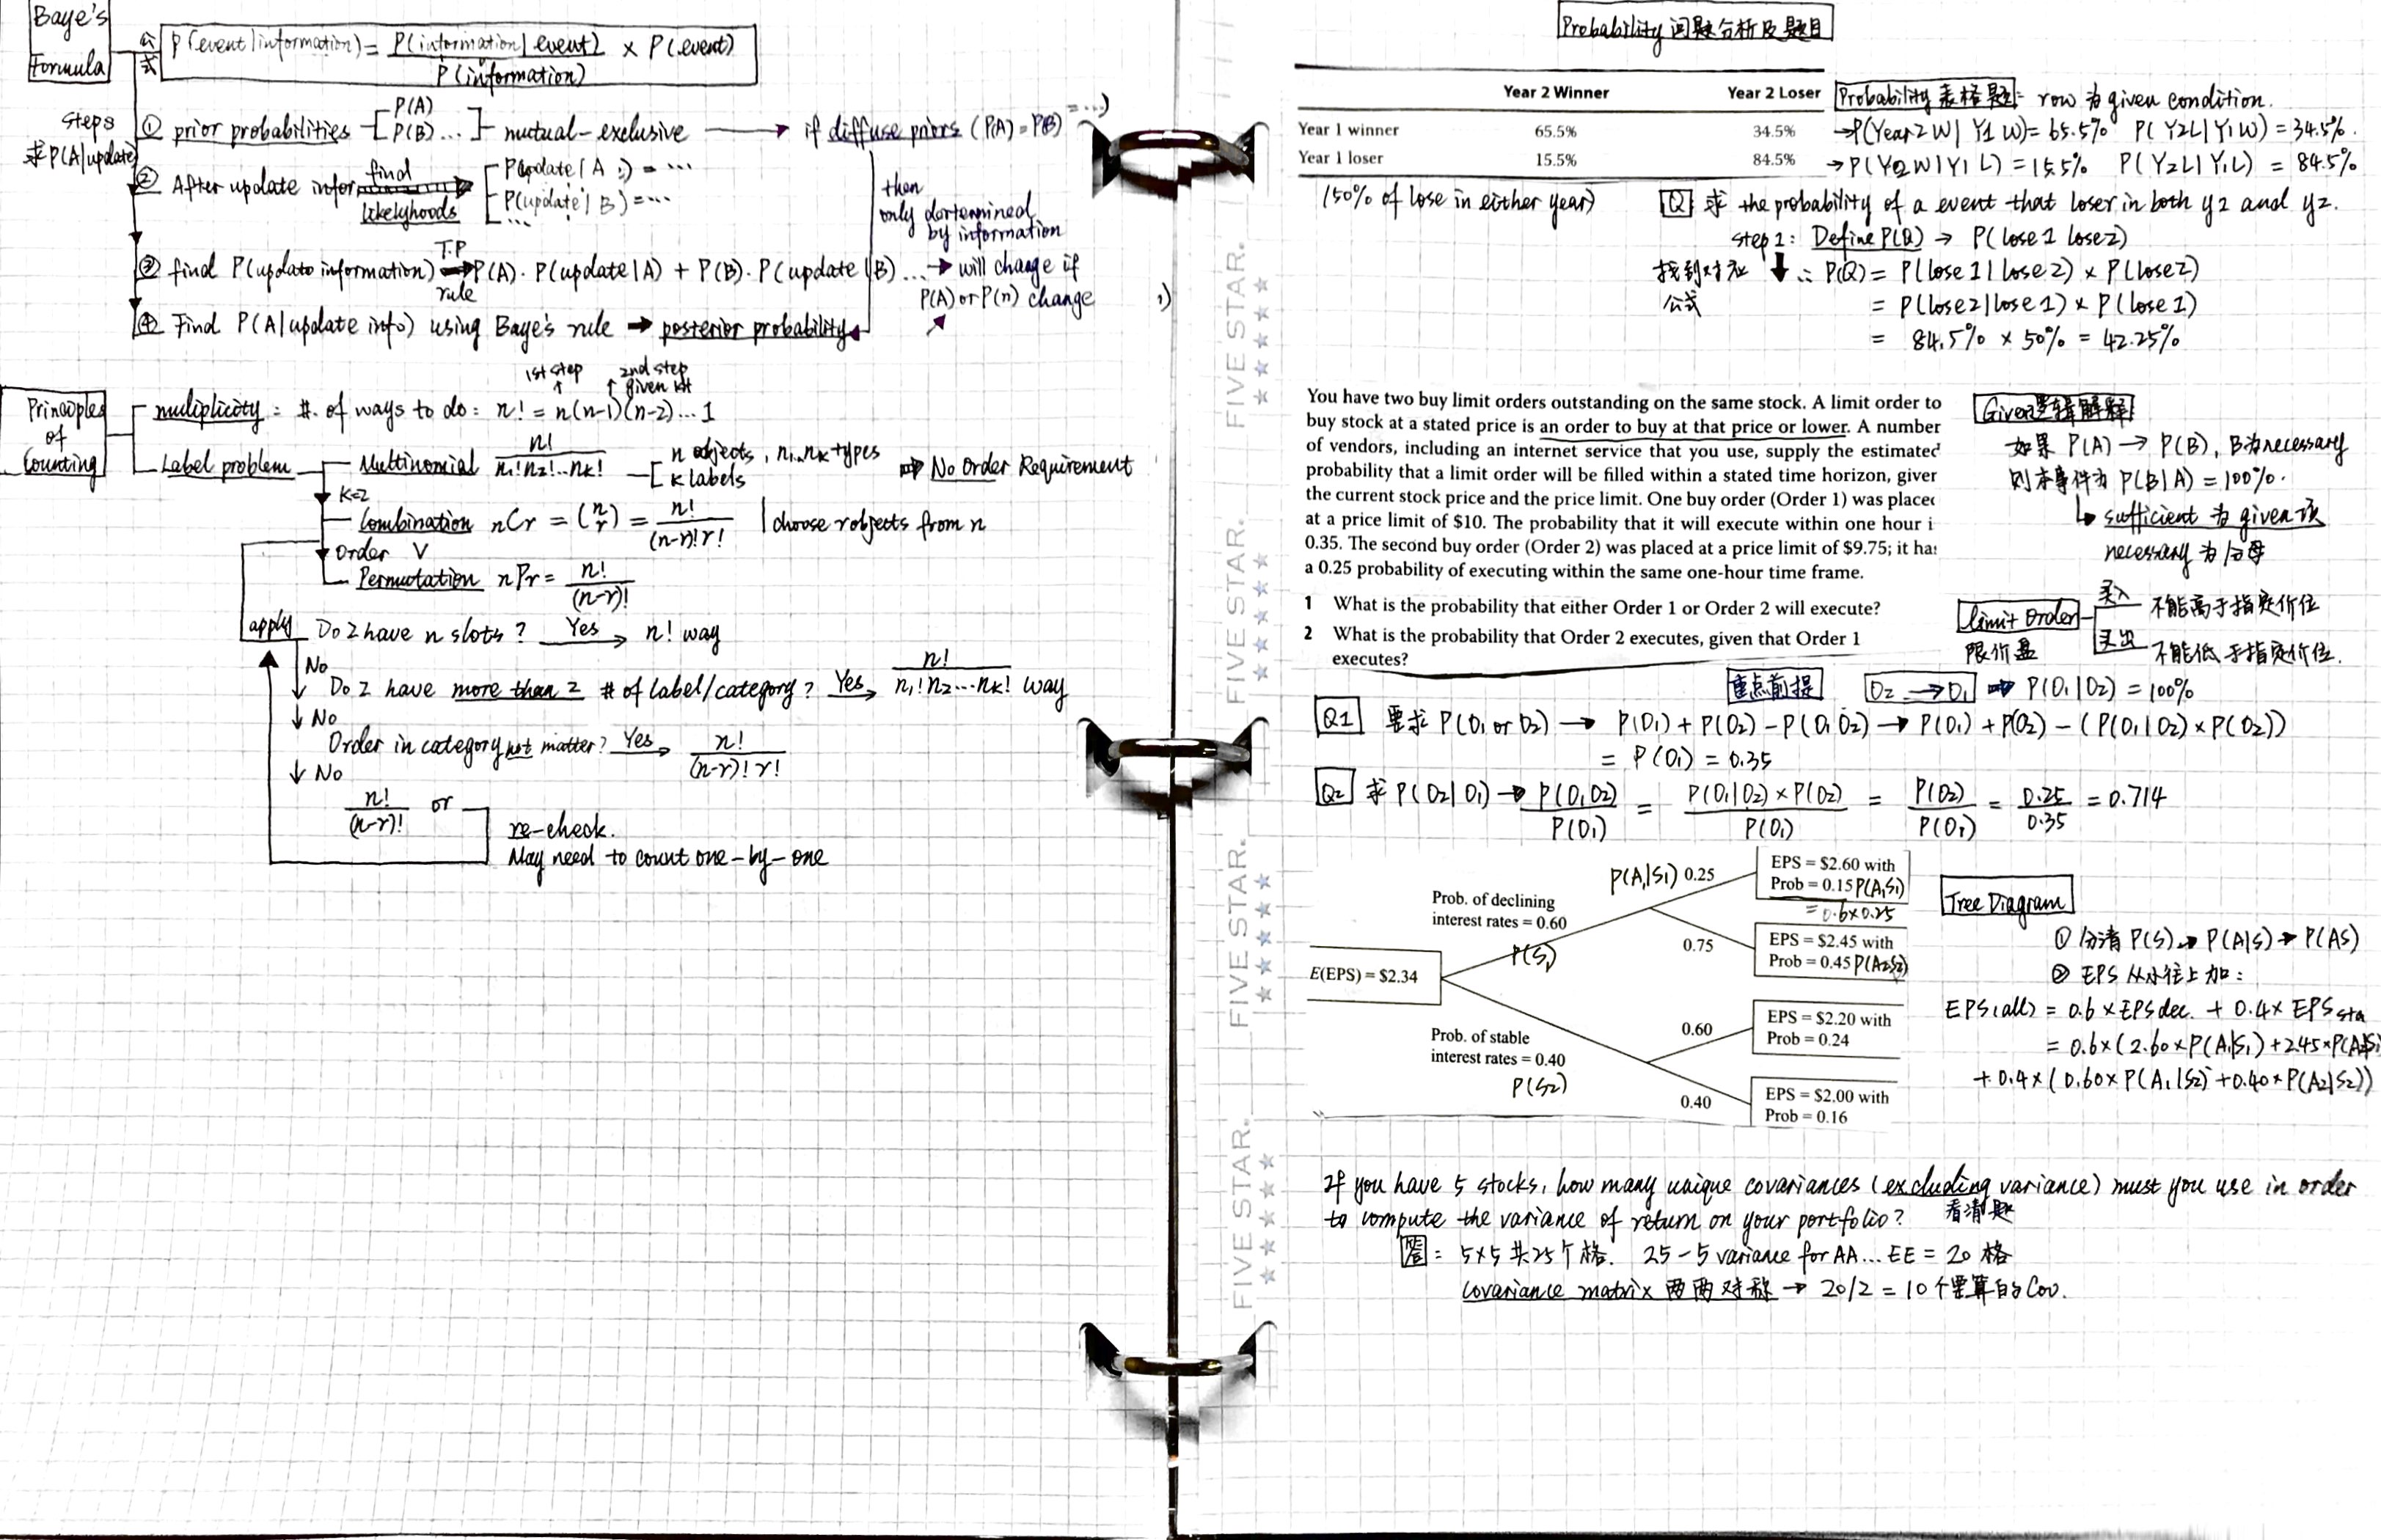 Baye's
Formula
公式 P(event|information) = P(information|event) / P(information) × P(event)
steps
求P(A|update)
① prior probabilities P(A) P(B)... mutual-exclusive → if diffuse priors (P(A) = P(B) = ...)
② After update infor find likelyhoods P(update|A) = ...
P(update|B) = ...
...
then
only dertermined
by information
③ find P(update information) T.P rule → P(A)·P(update|A) + P(B)·P(update|B)... → will change if
P(A) or P(n) change
④ Find P(A|update info) using Baye's rule → posterior probability
1st step 2nd step given 1st
Principles
of
Counting
muliplicity = #. of ways to do: n! = n(n-1)(n-2)... 1
Label problem
Multinomial n! / n₁!n₂!...nₖ! n objects, n₁..nₖ types
k labels
⇒ No Order Requirement
K=2
Combination nCr = (n r) = n! / (n-r)!r! | choose r objects from n
Order V
Permutation nPr = n! / (n-r)!
apply Do I have n slots? Yes → n! way
No
Do I have more than 2 # of label/category? Yes → n! / n₁!n₂...nₖ! way
No
Order in category not matter? Yes → n! / (n-r)!r!
No
n! / (n-r)! or
re-check.
May need to count one-by-one
Probability 问题分析及题目
Year 2 Winner Year 2 Loser
Year 1 winner 65.5% 34.5%
Year 1 loser 15.5% 84.5%
Probability 表格题: row 为 given condition.
→P(Year2W|Y1W) = 65.5% P(Y2L|Y1W) = 34.5%.
→P(Y2W|Y1L) = 15.5% P(Y2L|Y1L) = 84.5%
(50% of lose in either year)
Q 求 the probability of a event that loser in both y2 and y2.
step 1: Define P(Q) → P(lose1 lose2)
找到对应
公式
∴ P(Q) = P(lose1|lose2) × P(lose2)
= P(lose2|lose1) × P(lose1)
= 84.5% × 50% = 42.25%
You have two buy limit orders outstanding on the same stock. A limit order to
buy stock at a stated price is an order to buy at that price or lower. A number
of vendors, including an internet service that you use, supply the estimated
probability that a limit order will be filled within a stated time horizon, giver
the current stock price and the price limit. One buy order (Order 1) was placed
at a price limit of $10. The probability that it will execute within one hour i
0.35. The second buy order (Order 2) was placed at a price limit of $9.75; it has
a 0.25 probability of executing within the same one-hour time frame.
1 What is the probability that either Order 1 or Order 2 will execute?
2 What is the probability that Order 2 executes, given that Order 1
executes?
Given逻辑解释
如果 P(A) → P(B), B为necessary
则本事件为 P(B|A) = 100%.
↳ sufficient 为 given 项
necessary 为
limit Order
限价盘
买入 不能高于指定价位
卖出 不能低于指定价位.
重点前提 O₂ → O₁ ⇒ P(O₁|O₂) = 100%
Q1 要求 P(O₁ or O₂) → P(O₁) + P(O₂) - P(O₁O₂) → P(O₁) + P(O₂) - (P(O₁|O₂) × P(O₂))
= P(O₁) = 0.35
Q2 求 P(O₂|O₁) → P(O₁O₂) / P(O₁) = P(O₁|O₂) × P(O₂) / P(O₁) = P(O₂) / P(O₁) = 0.25 / 0.35 = 0.714
E(EPS) = $2.34
Prob. of declining
interest rates = 0.60
P(S₁)
P(A₁|S₁) 0.25
EPS = $2.60 with
Prob = 0.15 P(A₁S₁)
= 0.6×0.25
0.75
EPS = $2.45 with
Prob = 0.45 P(A₂S₂)
Prob. of stable
interest rates = 0.40
P(S₂)
0.60
EPS = $2.20 with
Prob = 0.24
0.40
EPS = $2.00 with
Prob = 0.16
Tree Diagram
① 分清 P(S) → P(A|S) → P(AS)
② EPS 从小往上加:
EPS(all) = 0.6 × EPS dec. + 0.4 × EPS sta
= 0.6 × (2.60 × P(A₁|S₁) + 2.45 × P(A₂|S₁
+ 0.4 × (0.60 × P(A₁|S₂) + 0.40 × P(A₂|S₂))
If you have 5 stocks, how many unique covariances (excluding variance) must you use in order
to compute the variance of return on your portfolio? 看清题
答: 5×5 共25个格. 25-5 variance for AA...EE = 20 格
covariance matrix 两两对称 → 20/2 = 10个要算的Cov.
FIVE STAR.
FIVE STAR.
FIVE STAR.
FIVE STAR.